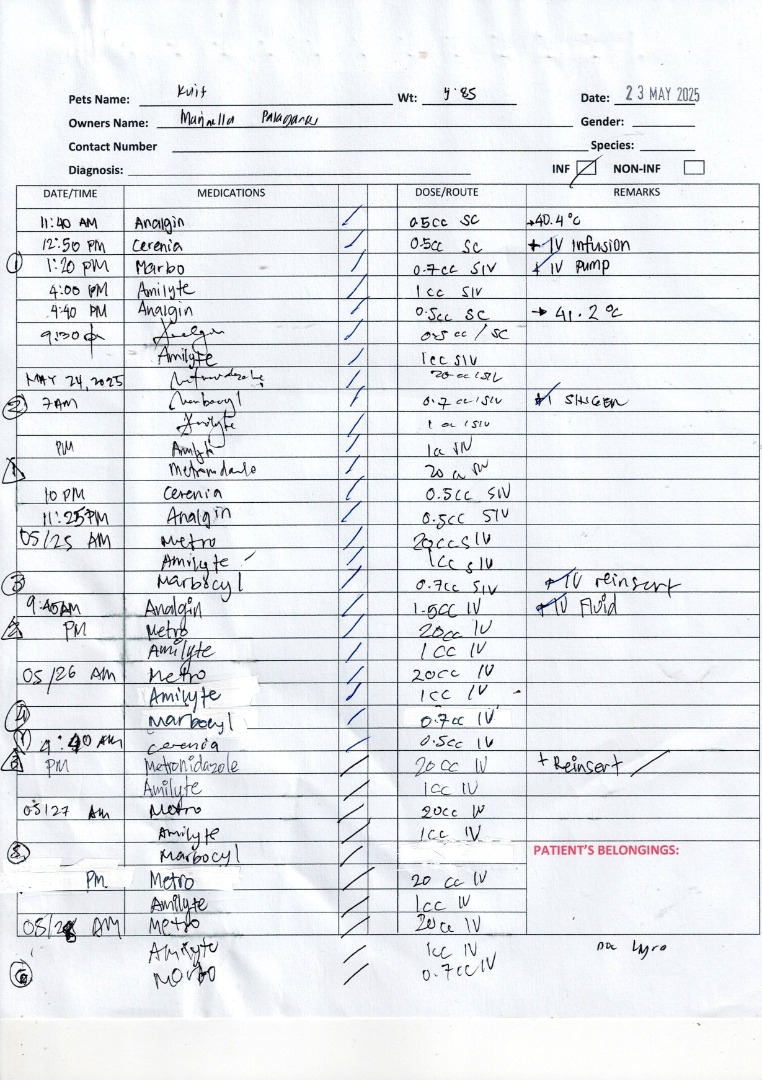 Pets Name: Wt: 4.85 Date: 23 MAY 2025
Owners Name: Gender:
Contact Number Species:
Diagnosis: INF NON-INF
DATE/TIME MEDICATIONS DOSE/ROUTE REMARKS
11:40 AM Analgin 0.5cc SC →40.4°C
12:50 PM Cerenia 0.5cc SC + IV Infusion
① 1:20 PM Marbo 0.7cc SIV + IV Pump
4:00 PM Amilyte 1cc SIV
4:40 PM Analgin 0.5cc SC → 41.2°C
9:30 Analgin 0.5cc / SC
Amilyte 1cc SIV
MAY 24, 2025 Metronidazole 20cc/SIV
② 7AM Marbocyl 0.7cc/SIV
Amilyte 1cc/SIV
PM Amilyte 1cc SIV
1 Metronidazole 20cc SIV
10 PM Cerenia 0.5cc SIV
11:25PM Analgin 0.5cc SIV
05/25 AM Metro 20cc SIV
Amilyte 1cc SIV
③ Marbocyl 0.7cc SIV + IV reinsert
9:40AM Analgin 1.5cc IV + IV Fluid
2 PM Metro 20cc IV
Amilyte 1cc IV
05/26 AM Metro 20cc IV
Amilyte 1cc IV
④ Marbocyl 0.7cc IV
AM Cerenia 0.5cc IV
3 PM Metronidazole 20cc IV + Reinsert
Amilyte 1cc IV
05/27 AM Metro 20cc IV
Amilyte 1cc IV
⑤ Marbocyl
PATIENT'S BELONGINGS:
PM Metro 20 cc IV
Amilyte 1cc IV
05/28 AM Metro 20cc IV
Amilyte 1cc IV
⑥ Marbo 0.7cc IV